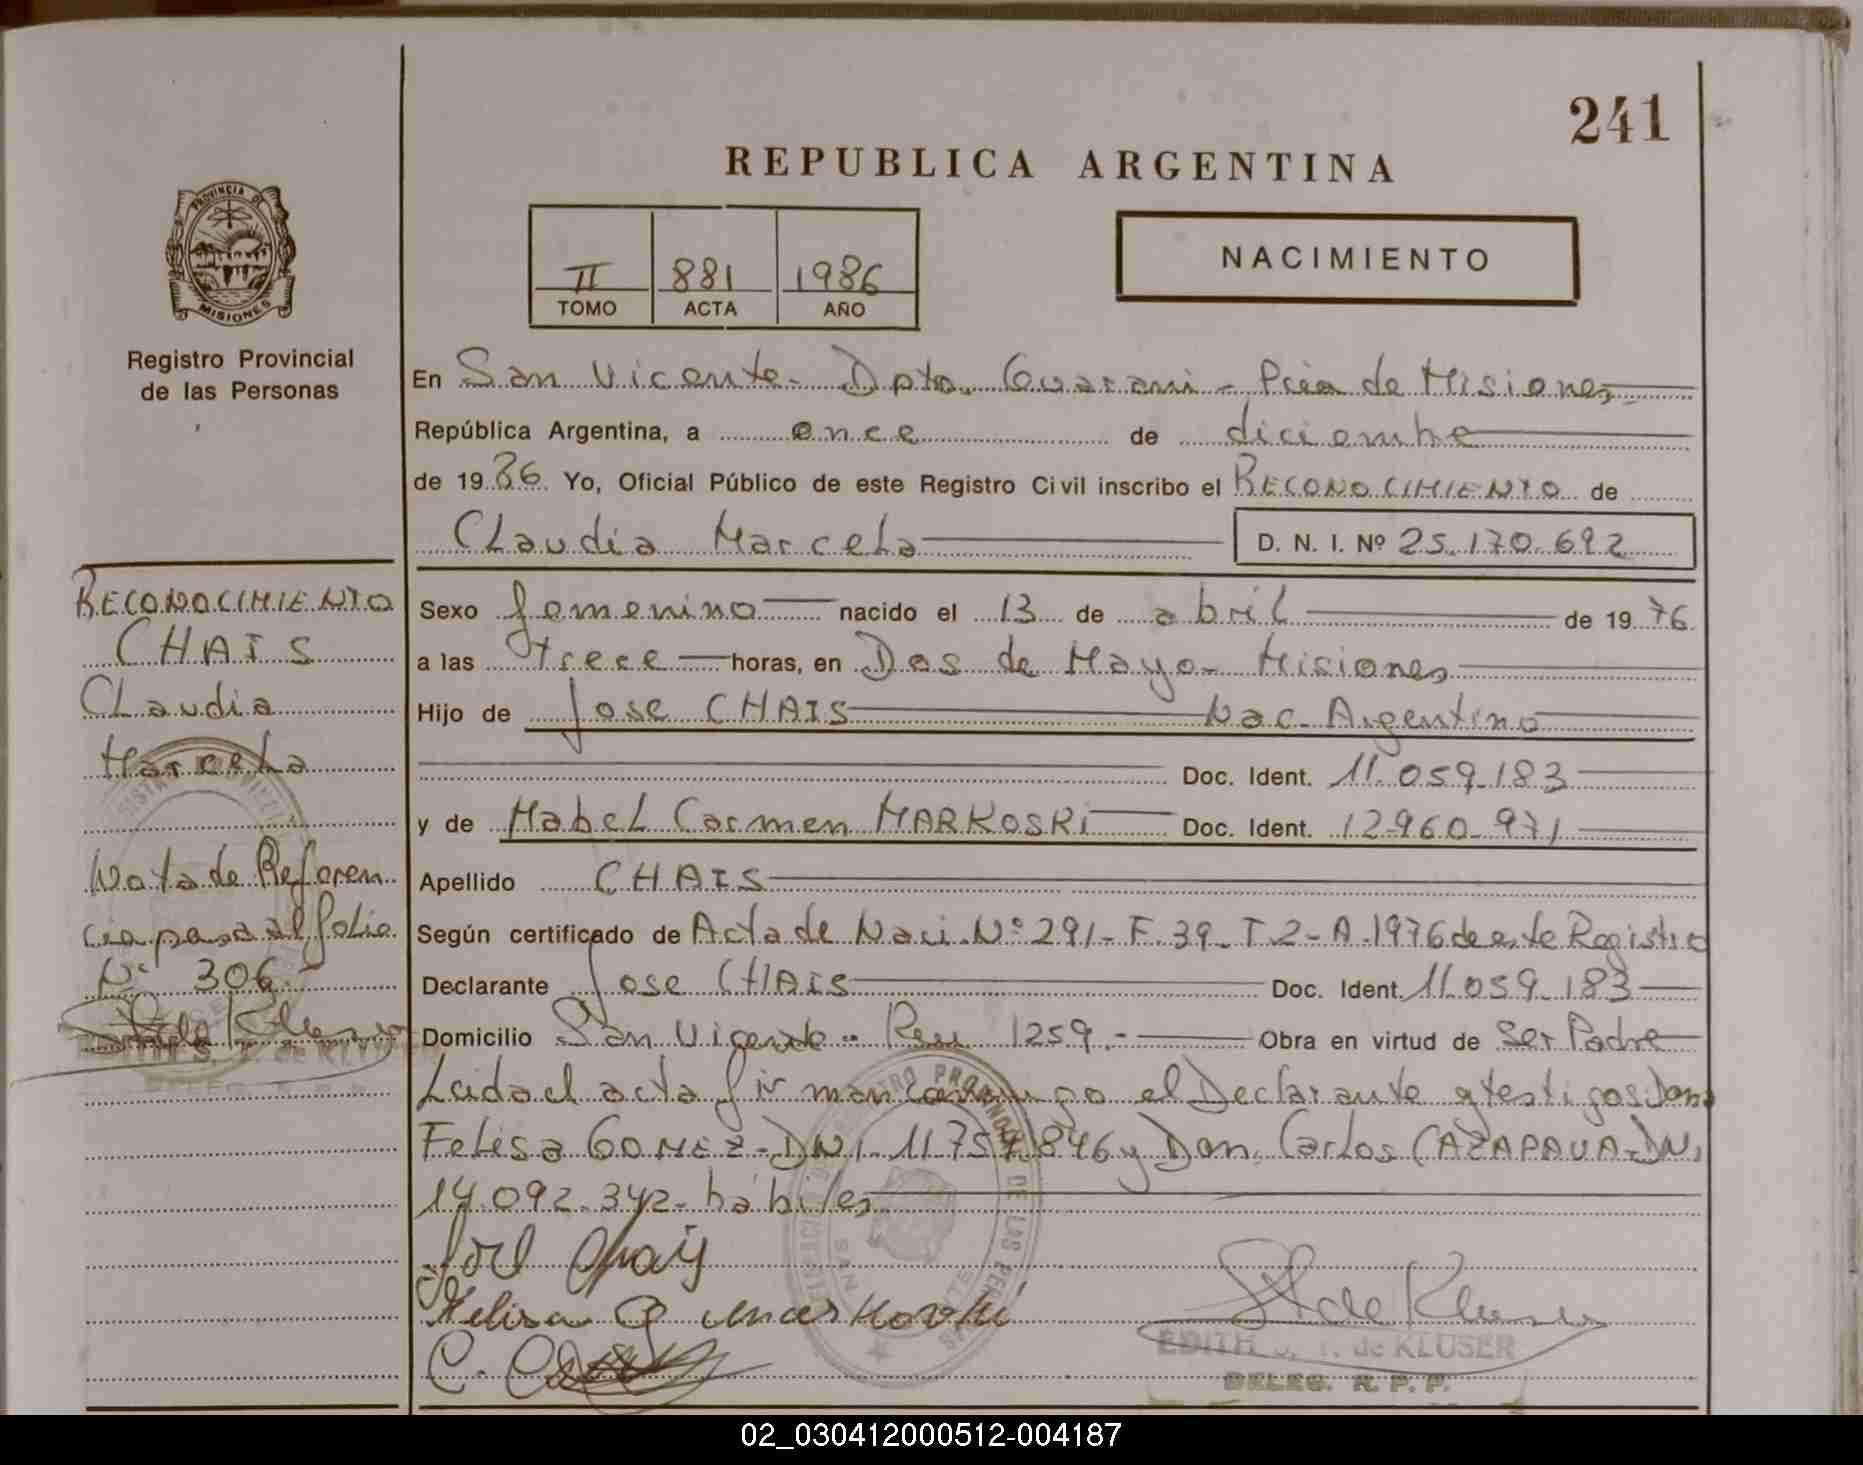 241
REPUBLICA ARGENTINA
II 881 1986
TOMO ACTA AÑO
NACIMIENTO
PROVINCIA DE
MISIONES
Registro Provincial
de las Personas
En San Vicente - Dpto. Guarani - Pcia de Misiones
República Argentina, a once de diciembre
de 1986 Yo, Oficial Público de este Registro Civil inscribo el RECONOCIMIENTO de
Claudia Marcela D. N. I. Nº 25.170.692
Sexo femenino nacido el 13 de abril de 1976
a las trece horas, en Dos de Mayo - Misiones
Hijo de Jose CHAIS Nac. Argentino
Doc. Ident. 11.059.183
y de Mabel Carmen MARKOSKI Doc. Ident. 12.960.971
Apellido CHAIS
Según certificado de Acta de Naci. Nº 291 - F. 39 - T. 2 - A. 1976 de este Registro
Declarante Jose CHAIS Doc. Ident. 11.059.183
Domicilio San Vicente - 1259.- Obra en virtud de Ser Padre
Leida el acta firman conmigo el Declarante y testigos Dona
Felisa GOMEZ - DNI. 11.757.846 y Don. Carlos CAZAPAVA - DNI
14.092.342 - hábiles
Felisa G markoski
EDITH J. T. de KLUSER
DELEG. R. P. P.
RECONOCIMIENTO
CHAIS
Claudia
Marcela
Nota de Referen
cia pasa al folio
Nº 306.-
EDITH de KLUSER
DELEG. R. P. P.
02_030412000512-004187